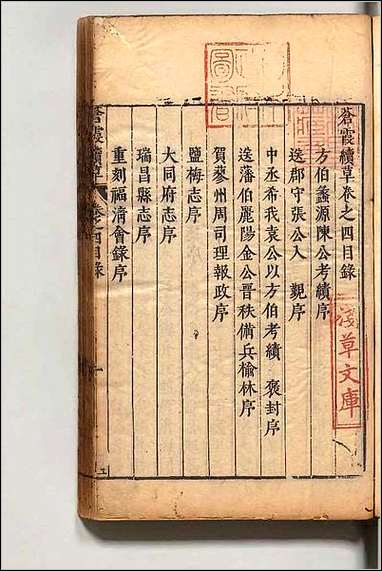 蒼霞續草卷之四目錄
方伯蠡源陳公考績序
送郡守張公入 覲序
中丞希我袁公以方伯考績 褒封序
送藩伯麗陽金公晉秩備兵榆林序
賀蓼州周司理報政序
鹽梅志序
大同府志序
瑞昌縣志序
重刻福清會錄序
蒼霞續草
卷之四目錄
一
淺草文庫